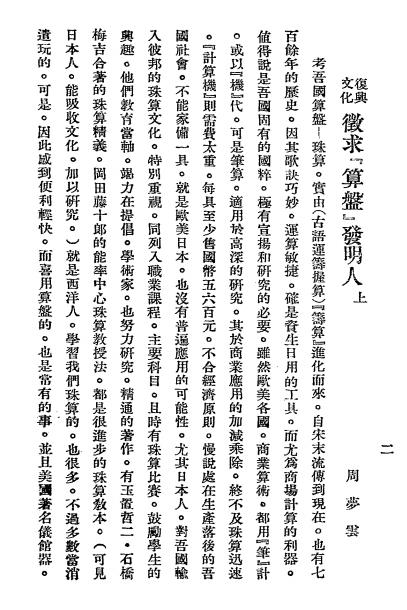 復興文化 徵求『算盤』發明人 上
二
周夢雲
考吾國算盤—珠算。實由(古語運籌握算)『籌算』進化而來。自宋末流傳到現在。也有七
百餘年的歷史。因其歌訣巧妙。運算敏捷。確是資生日用的工具。而尤爲商場計算的利器。
値得說是吾國固有的國粹。極有宣揚和研究的必要。雖然歐美各國。商業算術。都用『筆』計
。或以『機』代。可是筆算。適用於高深的研究。其於商業應用的加減乘除。終不及珠算迅速
。『計算機』則需費太重。每具至少售國幣五六百元。不合經濟原則。慢說處在生產落後的吾
國社會。不能家備一具。就是歐美日本。也沒有普遍應用的可能性。尤其日本人。對吾國輸
入彼邦的珠算文化。特別重視。同列入職業課程。主要科目。且時有珠算比賽。鼓勵學生的
興趣。他們教育當軸。竭力在提倡。學術家。也努力研究。精通的著作。有玉置哲二・石橋
梅吉合著的珠算精義。岡田藤十郎的能率中心珠算教授法。都是很進步的珠算敎本。(可見
日本人。能吸收文化。加以研究。)就是西洋人。學習我們珠算的。也很多。不過多數當消
遣玩的。可是。因此感到便利輕快。而喜用算盤的。也是常有的事。並且美國著名儀館器。